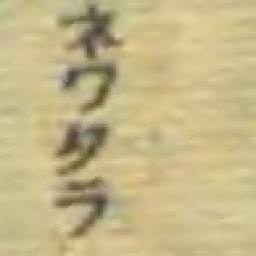 ネワタラ